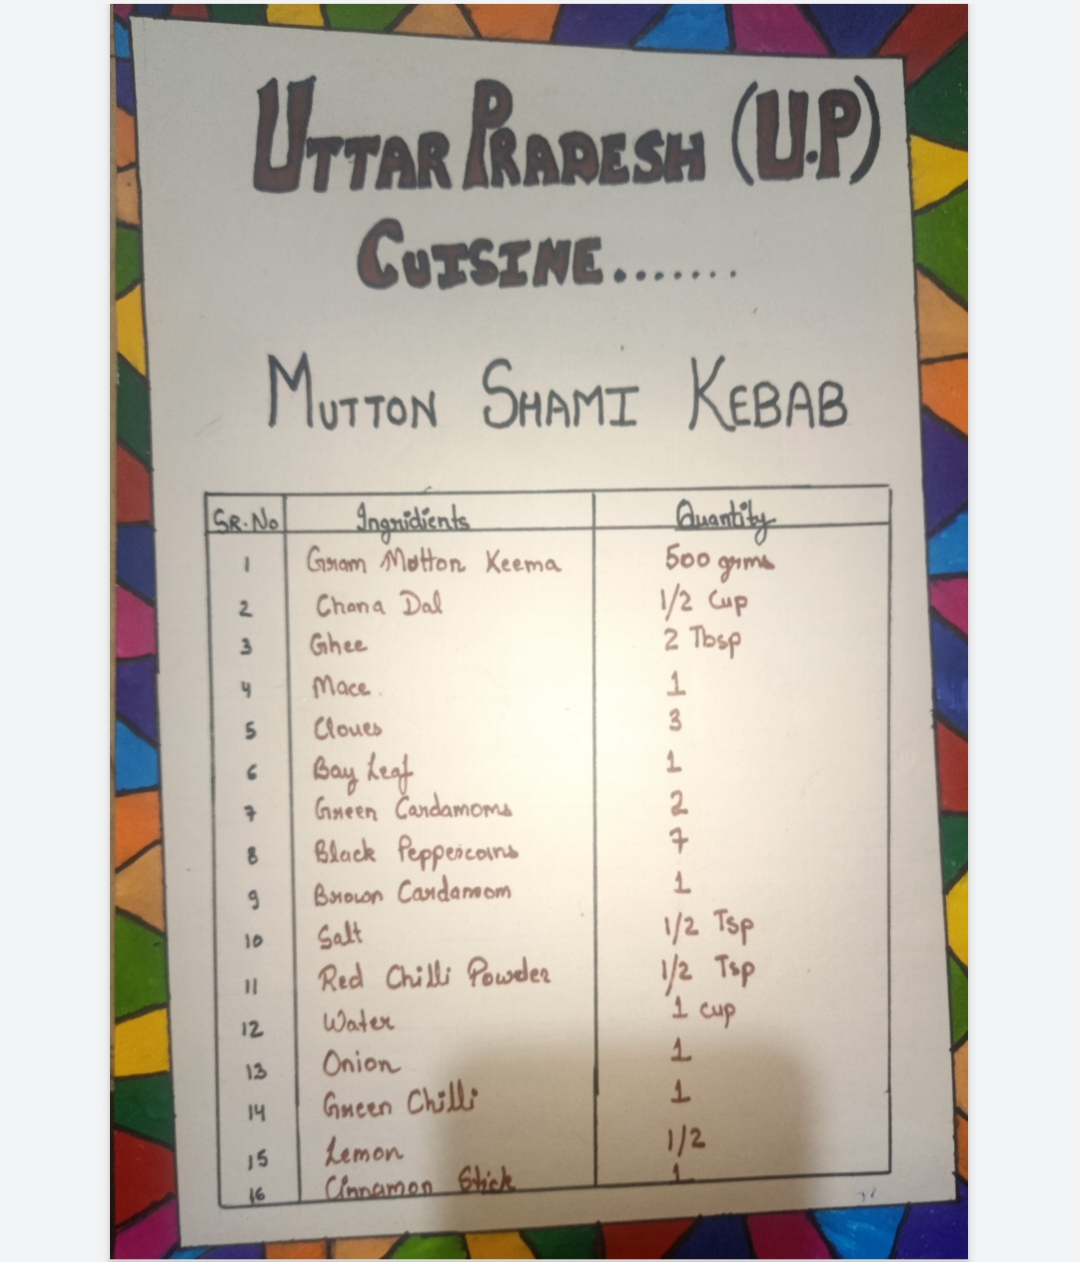 UTTAR PRADESH (U.P)
CUISINE.......
MUTTON SHAMI KEBAB
SR.No Ingridients Quantity
1 Gram Motton Keema 500 grms
2 Chana Dal 1/2 Cup
3 Ghee 2 Tbsp
4 Mace. 1
5 Cloves 3
6 Bay Leaf 1
7 Green Cardamoms 2
8 Black Peppercorns 7
9 Brown Cardamom 1
10 Salt 1/2 Tsp
11 Red Chilli Powder 1/2 Tsp
12 Water 1 cup
13 Onion 1
14 Green Chilli 1
15 Lemon 1/2
16 Cinnamon Stick 1